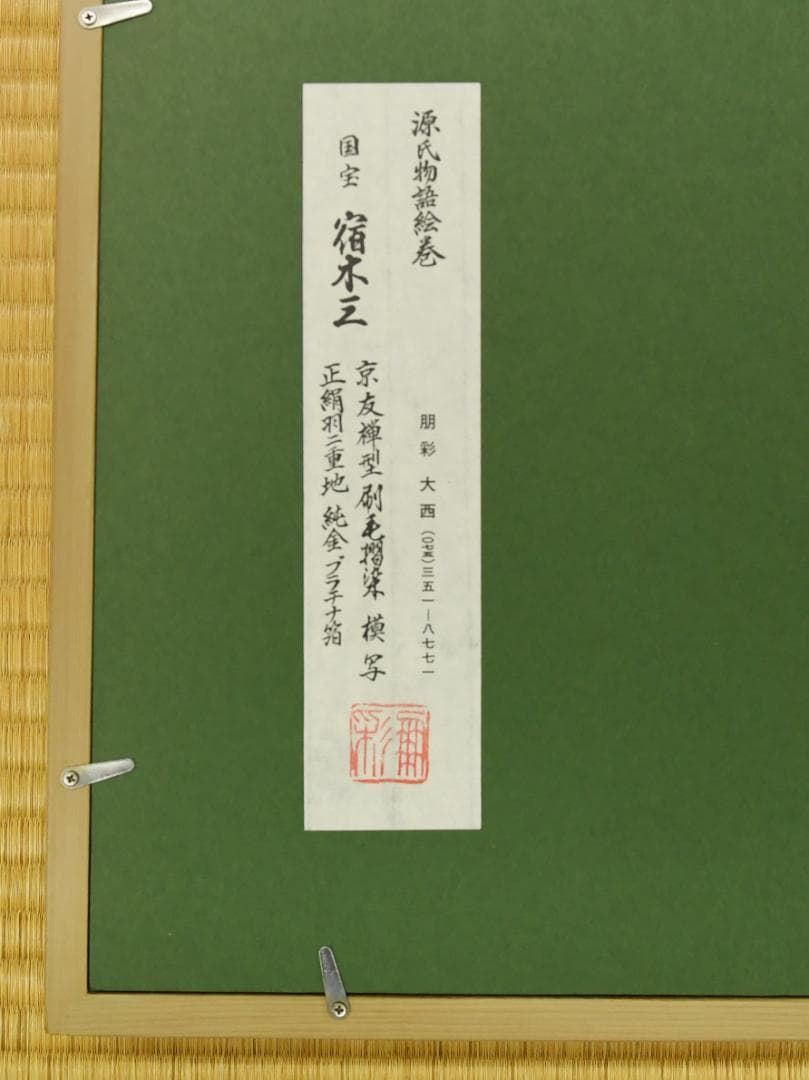 源氏物語絵巻
朋彩 大西(〇七五)三五一ー八七七一
国宝 宿木三
京友禅型刷毛摺染 模写
正絹羽二重地 純金プラチナ箔
朋彩